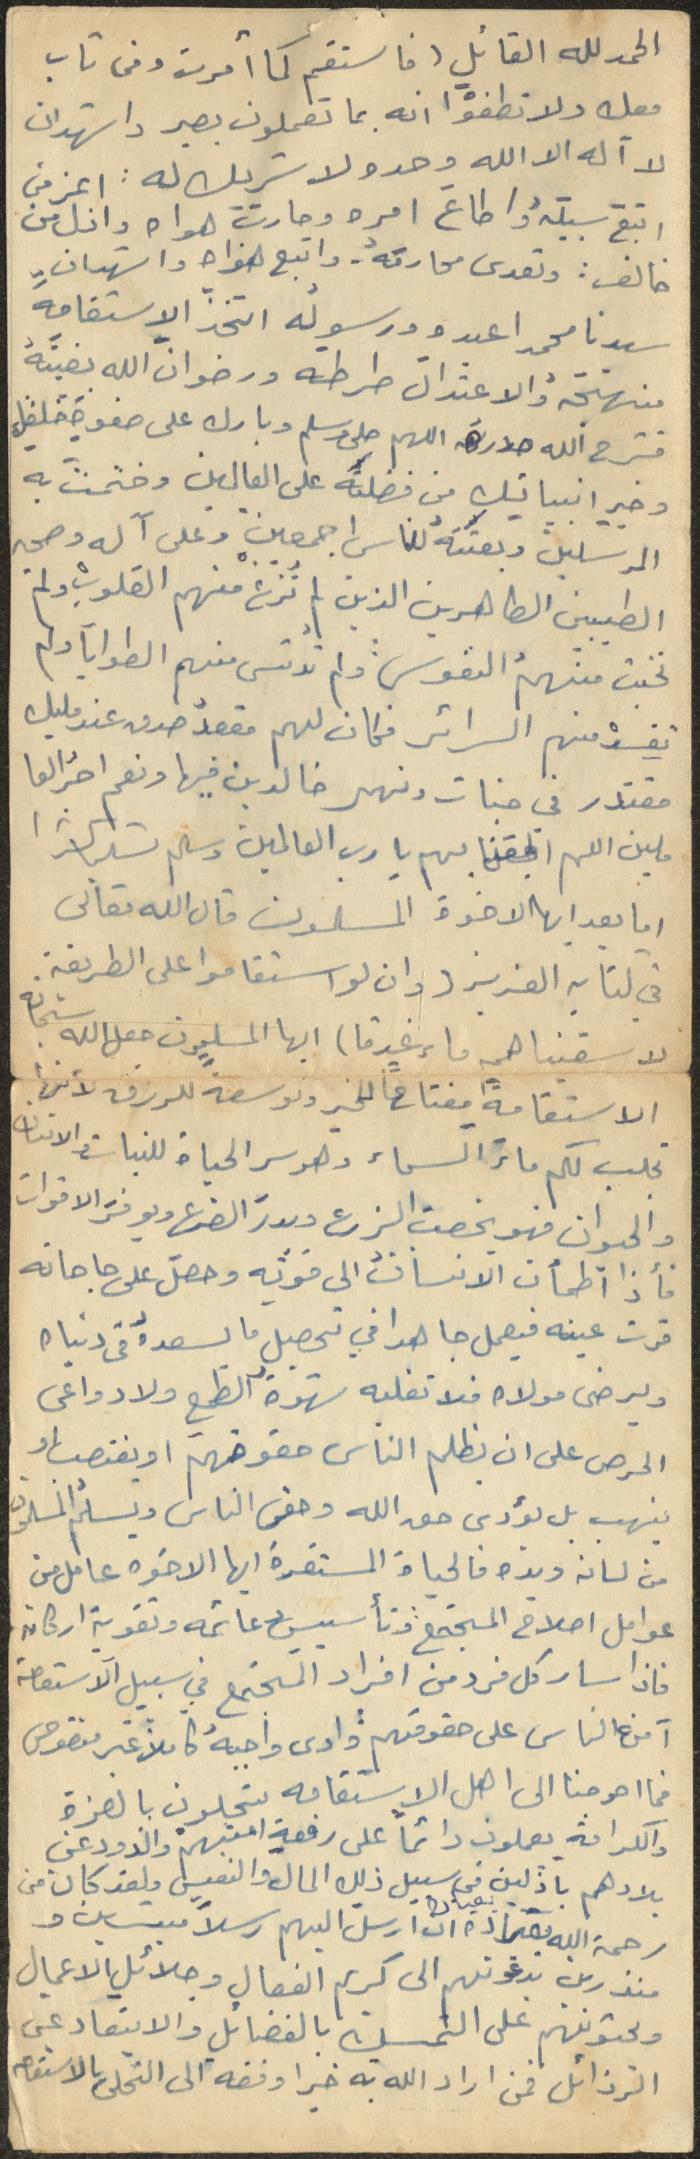 الحمد لله القائل (فاستقم كما أمرت ومن تاب
معك ولا تطغوا انه بما تعملون بصير واشهد ان
لا آله الا الله وحده لا شريك له : اعز من
اتبع سبيله واطاع امره وحارب هواه واذل من
خالف : وتعدى محارمه : واتبع هواه واشهد ان
سيدنا محمدا عبده ورسوله اتخذ الاستقامة
منهجه والاعتدال طريقه ورضوان الله بغيته
فشرح الله صدره اللهم صلي وسلم وبارك على صفوة خلقك
وخير انبيائك من فضلته على العالمين وختمت به
المرسلين وبعثته للناس اجمعين وعلى آله وصحبه
الطيبين الطاهرين الذين لم تزغ منهم القلوب ولم
تخبث منهم النفوس ولم تدنس منهم الطوايا ولم
تفسد منهم السرائر فكان لهم مقعد صدق عند مليك
مقتدر في جنات ونهر خالدين فيها ونعم اجر العا
ملين اللهم الحقنا بهم يا رب العالمين وسلم تسليما كثيرا
اما بعد ايها الاخوة المسلمون قال الله تعالى
في كتابه العزيز (وان لو استقاموا على الطريقة
لاسقيناهم ماء غدقا) ايها المسلمون جعل الله سبحانه
الاستقامة مفتاحا للخير وتوسعة للرزق لأنها
تجلب لكم ماء السماء وهو سر الحياة للنبات والانسان
والحيوان فهو يخصب الزرع ويدر الضرع ويوفر الاقوات
فأذا اطمأن الانسان الى قوته وحصل على حاجاته
قرت عينه فيعمل جاهدا في تحصيل ما يسعده في دنياه
ويرضي مولاه فلا تغلبه شهوة الطمع ولا دواعي
الحرص على ان يظلم الناس حقوقهم او يغتصب او
ينهب بل يؤدي حق الله وحق الناس ويسلم المسلمون
من لسانه ويده فالحياة المستقرة ايها الاخوه عامل من
عوامل اصلاح المجتمع وتأسيس دعائمه وتقوية اركانه
فاذا سار كل فرد من افراد المجتمع في سبيل الاستقامة
آمن الناس على حقوقهم وادى واجبه كاملا غير منقوص
فما احوجنا الى اهل الاستقامه يتحلون بالعزة
والكرامة يعملون دائما على رفعة امتهم والذود عن
بلادهم باذلين في سبيل ذلك المال والنفيس ولقد كان من
رحمة الله بعباده ان ارسل اليهم رسلا مبشرين و
منذرين يدعونهم الى كريم الفعال وجلائل الاعمال
ويحثونهم على التمسك بالفضائل والابتعاد عن
الرذائل فمن اراد الله به خيرا وفقه الى التحلي بالاستقامه